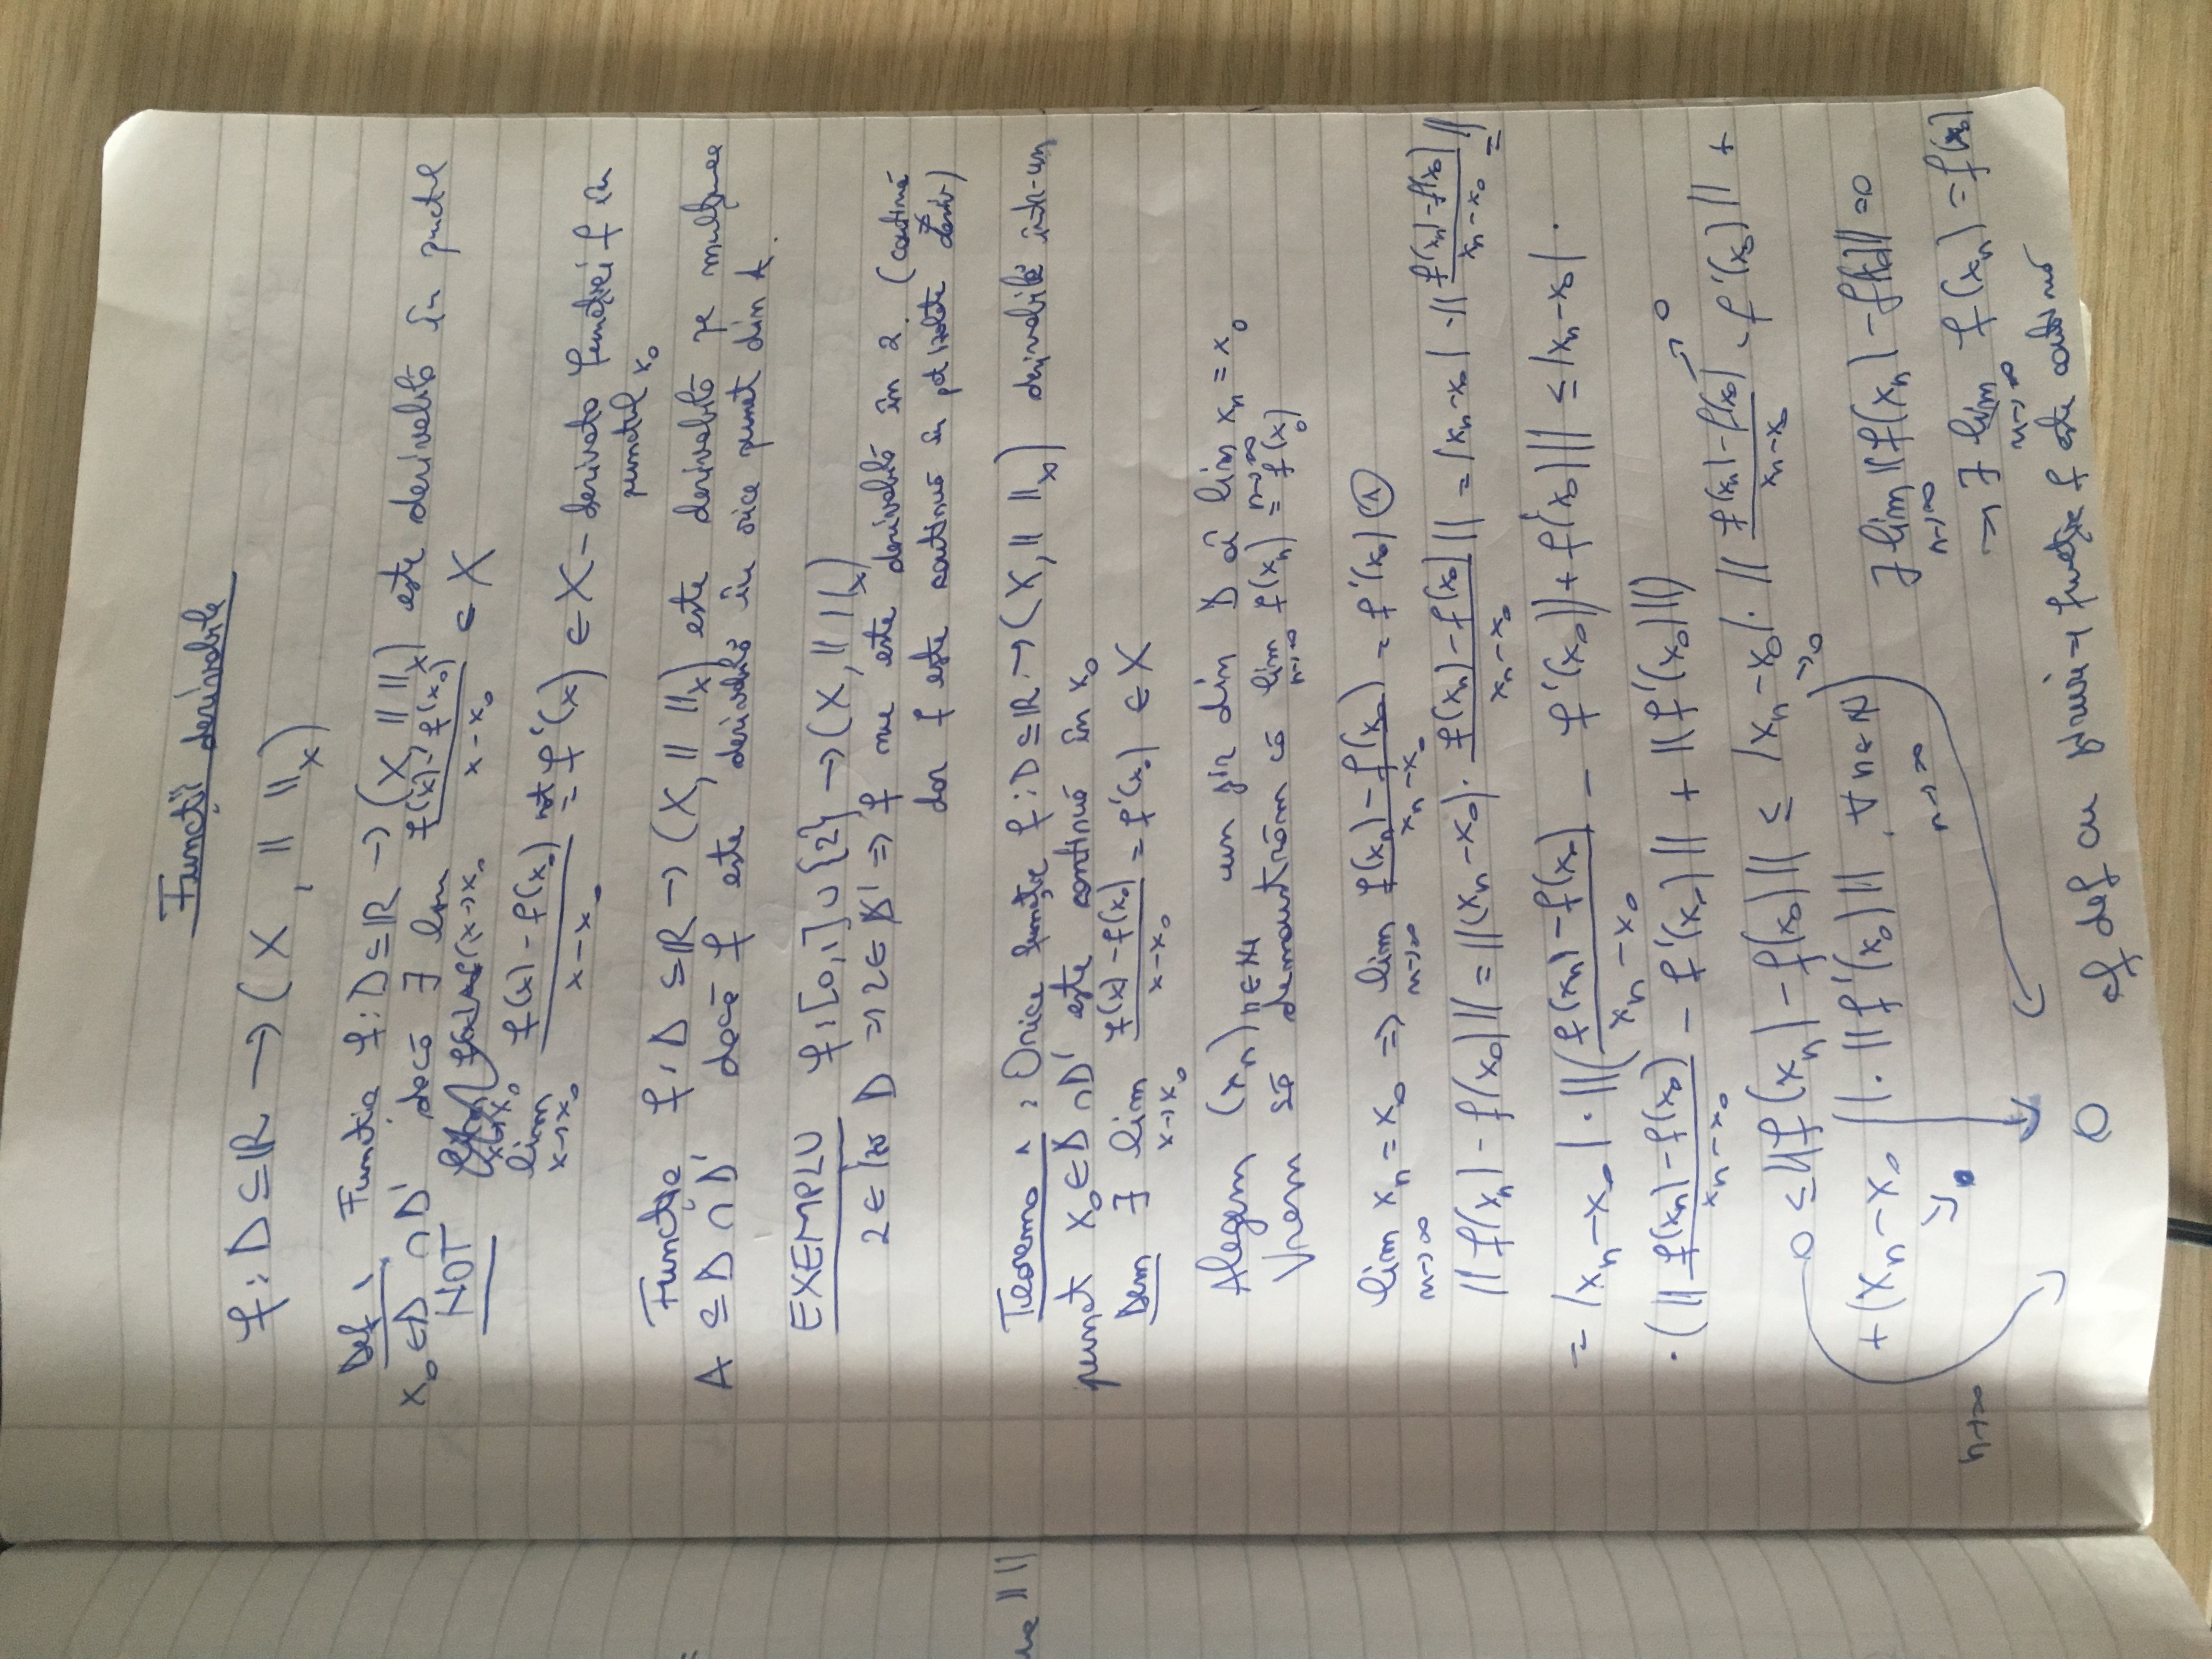 Funcții derivabile
f : D ⊆ ℝ → (X, || ||_X)
Def 1 Funcția f : D ⊆ ℝ → (X, || ||_X) este derivabilă în punctul
x₀ ∈ D ∩ D' dacă ∃ lim_{x→x₀} (f(x) - f(x₀))/(x - x₀) ∈ X
NOT
lim_{x→x₀} (f(x) - f(x₀))/(x - x₀) =^{not} f'(x) ∈ X - derivata funcției f în
punctul x₀
Funcția f : D ⊆ ℝ → (X, || ||_X) este derivabilă pe mulțimea
A ⊆ D ∩ D' dacă f este derivabilă în orice punct din A.
EXEMPLU f : [0,1] ∪ {2} → (X, || ||_X)
2 ∈ Izo D ⇒ 2 ∉ D' ⇒ f nu este derivabilă în 2. (continuă
dar f este continuă în pct izolate ≠ deriv)
Teorema 1 : Orice funcție f : D ⊆ ℝ → (X, || ||_X) derivabilă într-un
punct x₀ ∈ D ∩ D' este continuă în x₀
Dem ∃ lim_{x→x₀} (f(x) - f(x₀))/(x - x₀) = f'(x₀) ∈ X
Alegem (xₙ)_{n∈ℕ} un șir din D aî lim_{n→∞} xₙ = x₀
Vrem să demonstrăm că lim_{n→∞} f(xₙ) = f(x₀)
lim_{n→∞} xₙ = x₀ ⇒ lim_{n→∞} (f(xₙ) - f(x₀))/(xₙ - x₀) = f'(x₀) ①
|| f(xₙ) - f(x₀) || = || (xₙ - x₀) · (f(xₙ) - f(x₀))/(xₙ - x₀) || = |xₙ - x₀| · || (f(xₙ) - f(x₀))/(xₙ - x₀) || =
= |xₙ - x₀| · || ((f(xₙ) - f(x₀))/(xₙ - x₀) - f'(x₀)) + f'(x₀) || ≤ |xₙ - x₀| ·
· (|| (f(xₙ) - f(x₀))/(xₙ - x₀) - f'(x₀) || + || f'(x₀) ||)
→ 0
0 ≤ || f(xₙ) - f(x₀) || ≤ |xₙ - x₀| · || (f(xₙ) - f(x₀))/(xₙ - x₀) - f'(x₀) || +
→ 0
+ |xₙ - x₀| · || f'(x₀) ||, ∀ n ∈ ℕ
→ 0
n→∞
n→∞
∃ lim_{n→∞} || f(xₙ) - f(x₀) || = 0
→ ∃ lim_{n→∞} f(xₙ) = f(x₀)
0
cf def cu șiruri ⇒ funcția f este continuă